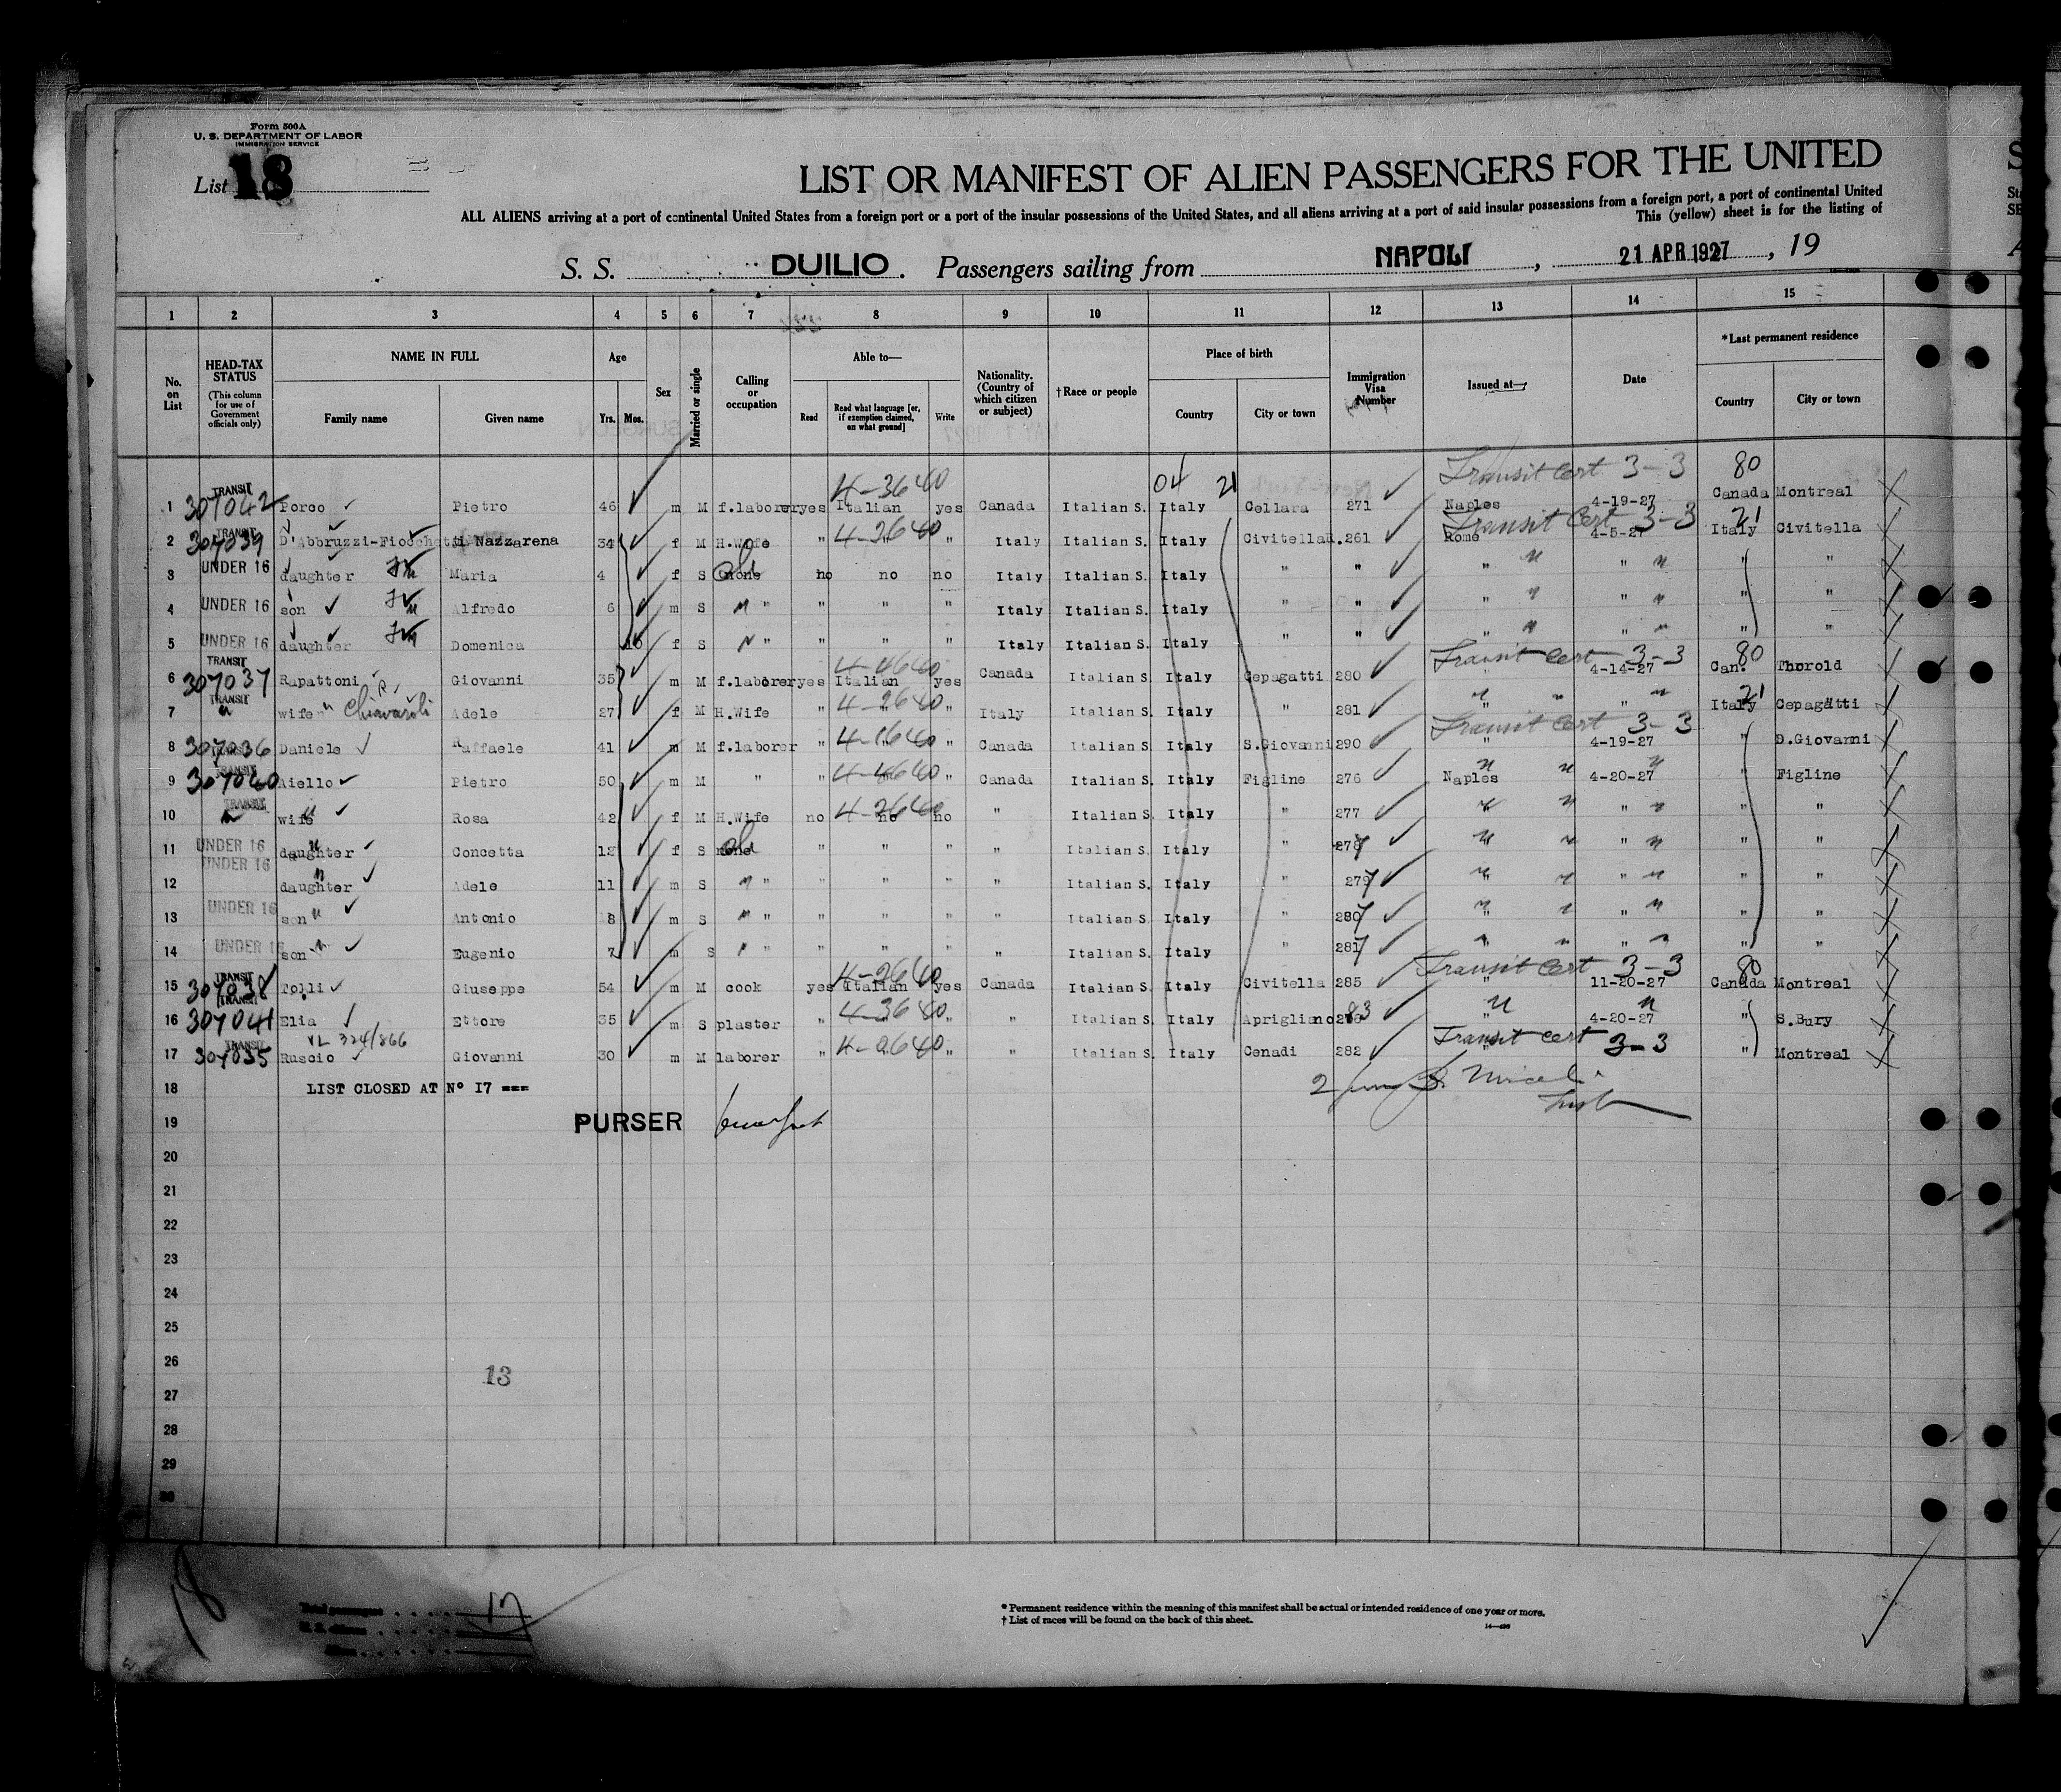 Form 500A
U. S. DEPARTMENT OF LABOR
IMMIGRATION SERVICE
List 18
LIST OR MANIFEST OF ALIEN PASSENGERS FOR THE UNITED
ALL ALIENS arriving at a port of continental United States from a foreign port or a port of the insular possessions of the United States, and all aliens arriving at a port of said insular possessions from a foreign port, a port of continental United
This (yellow) sheet is for the listing of
S. S. DUILIO. Passengers sailing from NAPOLI, 21 APR 1927, 19
1 2 3 4 5 6 7 8 9 10 11 12 13 14 15
No. on List
HEAD-TAX STATUS (This column for use of Government officials only)
NAME IN FULL Family name Given name
Age Yrs. Mos.
Sex
Married or single
Calling or occupation
Able to— Read Read what language [or, if exemption claimed, on what ground] Write
Nationality. (Country of which citizen or subject)
†Race or people
Place of birth Country City or town
Immigration Visa Number
Issued at—
Date
*Last permanent residence Country City or town
4-3640 04 21 Transit Cert 3-3 80
1 TRANSIT 307042 Porco Pietro 46 m M f.laborer yes Italian yes Canada Italian S. Italy Cellara 271 Naples 4-19-27 Canada Montreal
4-2640 Transit Cert 3-3 21
2 TRANSIT 307039 D'Abbruzzi-Fiocchetti Nazzarena 34 f M H.Wife " " Italy Italian S. Italy Civitella 261 Rome 4-5-27 Italy Civitella
3 UNDER 16 daughter Maria 4 f S none no no no Italy Italian S. Italy " " " " " "
4 UNDER 16 son Alfredo 6 m S " " " " Italy Italian S. Italy " " " " " "
5 UNDER 16 daughter Domenica 10 f S " " " " Italy Italian S. Italy " " " " " "
4-4640 Transit Cert 3-3 80
6 TRANSIT 307037 Rapattoni Giovanni 35 m M f.laborer yes Italian yes Canada Italian S. Italy Cepagatti 280 4-14-27 Can. Thorold
7 TRANSIT " wife " Chiavaroli Adele 27 f M H.Wife " 4-2640 " Italy Italian S. Italy " 281 " " 21 Italy Cepagatti
Transit Cert 3-3
8 307036 Daniele Raffaele 41 m M f.laborer " 4-1640 " Canada Italian S. Italy S.Giovanni 290 " 4-19-27 " D.Giovanni
9 TRANSIT 307040 Aiello Pietro 50 m M " " 4-4640 " Canada Italian S. Italy Figline 276 Naples 4-20-27 " Figline
10 TRANSIT " wife Rosa 42 f M H.Wife no 4-2640 no no " Italian S. Italy " 277 " " " "
11 UNDER 16 daughter Concetta 12 f S none " " " " Italian S. Italy " 277 " " " "
12 UNDER 16 daughter Adele 11 m S " " " " " Italian S. Italy " 277 " " " "
13 UNDER 16 son Antonio 8 m S " " " " " Italian S. Italy " 280 " " " "
14 UNDER 16 son Eugenio 7 m S " " " " " Italian S. Italy " 281 " " " "
4-2640 Transit Cert 3-3 80
15 TRANSIT 307038 Tolli Giuseppe 54 m M cook yes Italian yes Canada Italian S. Italy Civitella 285 " 11-20-27 Canada Montreal
16 TRANSIT 307041 Elia Ettore 35 m S plaster " 4-3640 " " Italian S. Italy Aprigliano 283 " 4-20-27 " S.Bury
VL 324/866 Transit Cert 3-3
17 TRANSIT 307035 Ruscio Giovanni 30 m M laborer " 4-2640 " " Italian S. Italy Cenadi 282 " Montreal
18 LIST CLOSED AT Nº I7 ===
19 PURSER
20
21
22
23
24
25
26
13
27
28
29
30
18
Total passengers . . . . 17
U. S. citizens . . . . .
Aliens . . . . .
* Permanent residence within the meaning of this manifest shall be actual or intended residence of one year or more.
† List of races will be found on the back of this sheet.